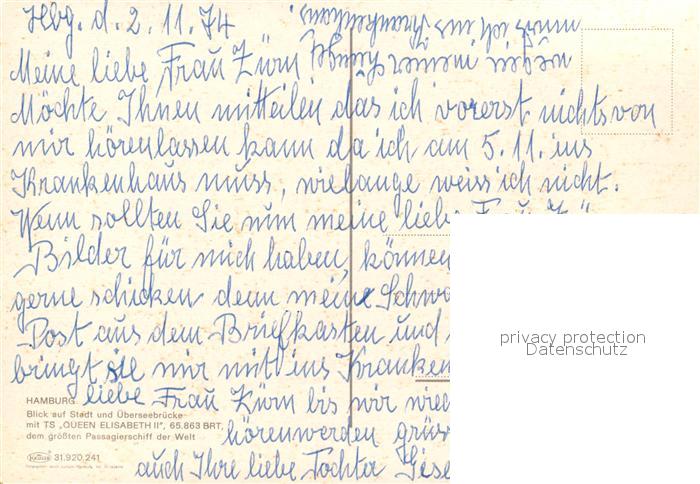 Hbg. d. 2. 11. 74
Meine liebe Frau Zürn
Möchte Ihnen mitteilen das ich vorerst nichts von
mir hörenlassen kann da ich am 5. 11. ins
Krankenhaus muss, wielange weiss ich nicht.
Wenn sollten Sie nun meine liebe Frau
Bilder für mich haben, können
gerne schicken denn meine
Post aus dem Briefkasten und
bringt sie mir mit ins
liebe Frau Zürn bis wir
hörenwerden
auch Ihre liebe Tochter
wegen meiner
muss ich ins Krankenhaus
privacy protection
Datenschutz
HAMBURG
Blick auf Stadt und Überseebrücke
mit TS „QUEEN ELISABETH II", 65.863 BRT,
dem größten Passagierschiff der Welt
KRÜGER 31.920.241